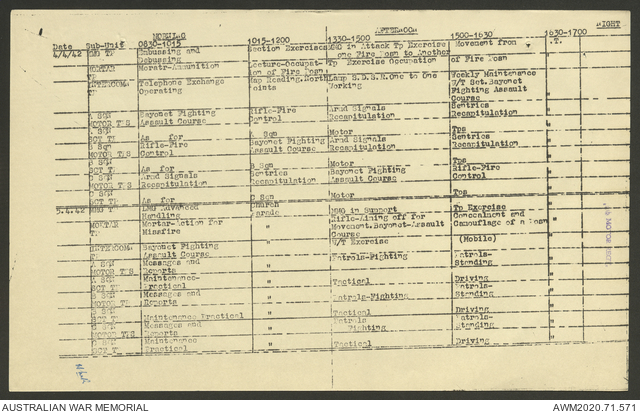 MORNING AFTERNOON NIGHT
Date Sub-Unit 0830-1015 1015-1200 1330-1500 1500-1630 1630-1700
4/4/42 MMG TP Embussing and Section Exercises MMG in Attack Tp Exercise Movement from P.T.
Debussing one Fire Posn to Another of Fire Posn
MORTAR Mortar-Ammunition Lecture-Occupat- Tp Exercise Occupation
TP ion of Fire Posn
INTERCOM. Telephone Exchange Map Reading.North Lamp S.D.S.R.One to One Weekly Maintenance
TP Operating Points Working W/T Set.Bayonet
Fighting Assault
Course
A SQN Bayonet Fighting Rifle-Fire Armd Signals Sentries
MOTOR TPS Assault Course Control Recapitulation Recapitulation
A SQN A Sqn Motor Tps
SCT TP As for Bayonet Fighting Armd Signals Sentries
B SQN Rifle-Fire Assault Course Recapitulation Recapitulation
MOTOR TPS Control
B SQN B Sqn Motor Tps
SCT TP As for Sentries Bayonet Fighting Rifle-Fire
C SQN Armd Signals Recapitulation Assault Course Control
MOTOR TPS Recapitulation
C SQN C Sqn Motor Tps
SCT TP As for
5.4.42 MMG TP Advanced Church MMG in Support Tp Exercise
Handling Parade
MORTAR Mortar-Action for " Rifle-Aiming off for Concealment and "
TP Missfire Movement.Bayonet-Assault Camouflage of a Posn
Course
INTERCOM. Bayonet Fighting " W/T Exercise (Mobile) "
TP Assault Course
A SQN Messages and " Patrols-Fighting Patrols-
MOTOR TPS Reports Standing
A SQN Maintenance- " Tactical Driving
SCT TP Practical
B SQN Messages and " Patrols-Fighting Patrols-
MOTOR TPS Reports Standing
B SQN
SCT TP Maintenance Practical " Tactical Driving
C SQN Messages and " Patrols Patrols-
MOTOR TPS Reports Fighting Standing
C SQN Maintenance " Tactical Driving
SCT TP Practical
AUSTRALIAN WAR MEMORIAL
AWM2020.71.571